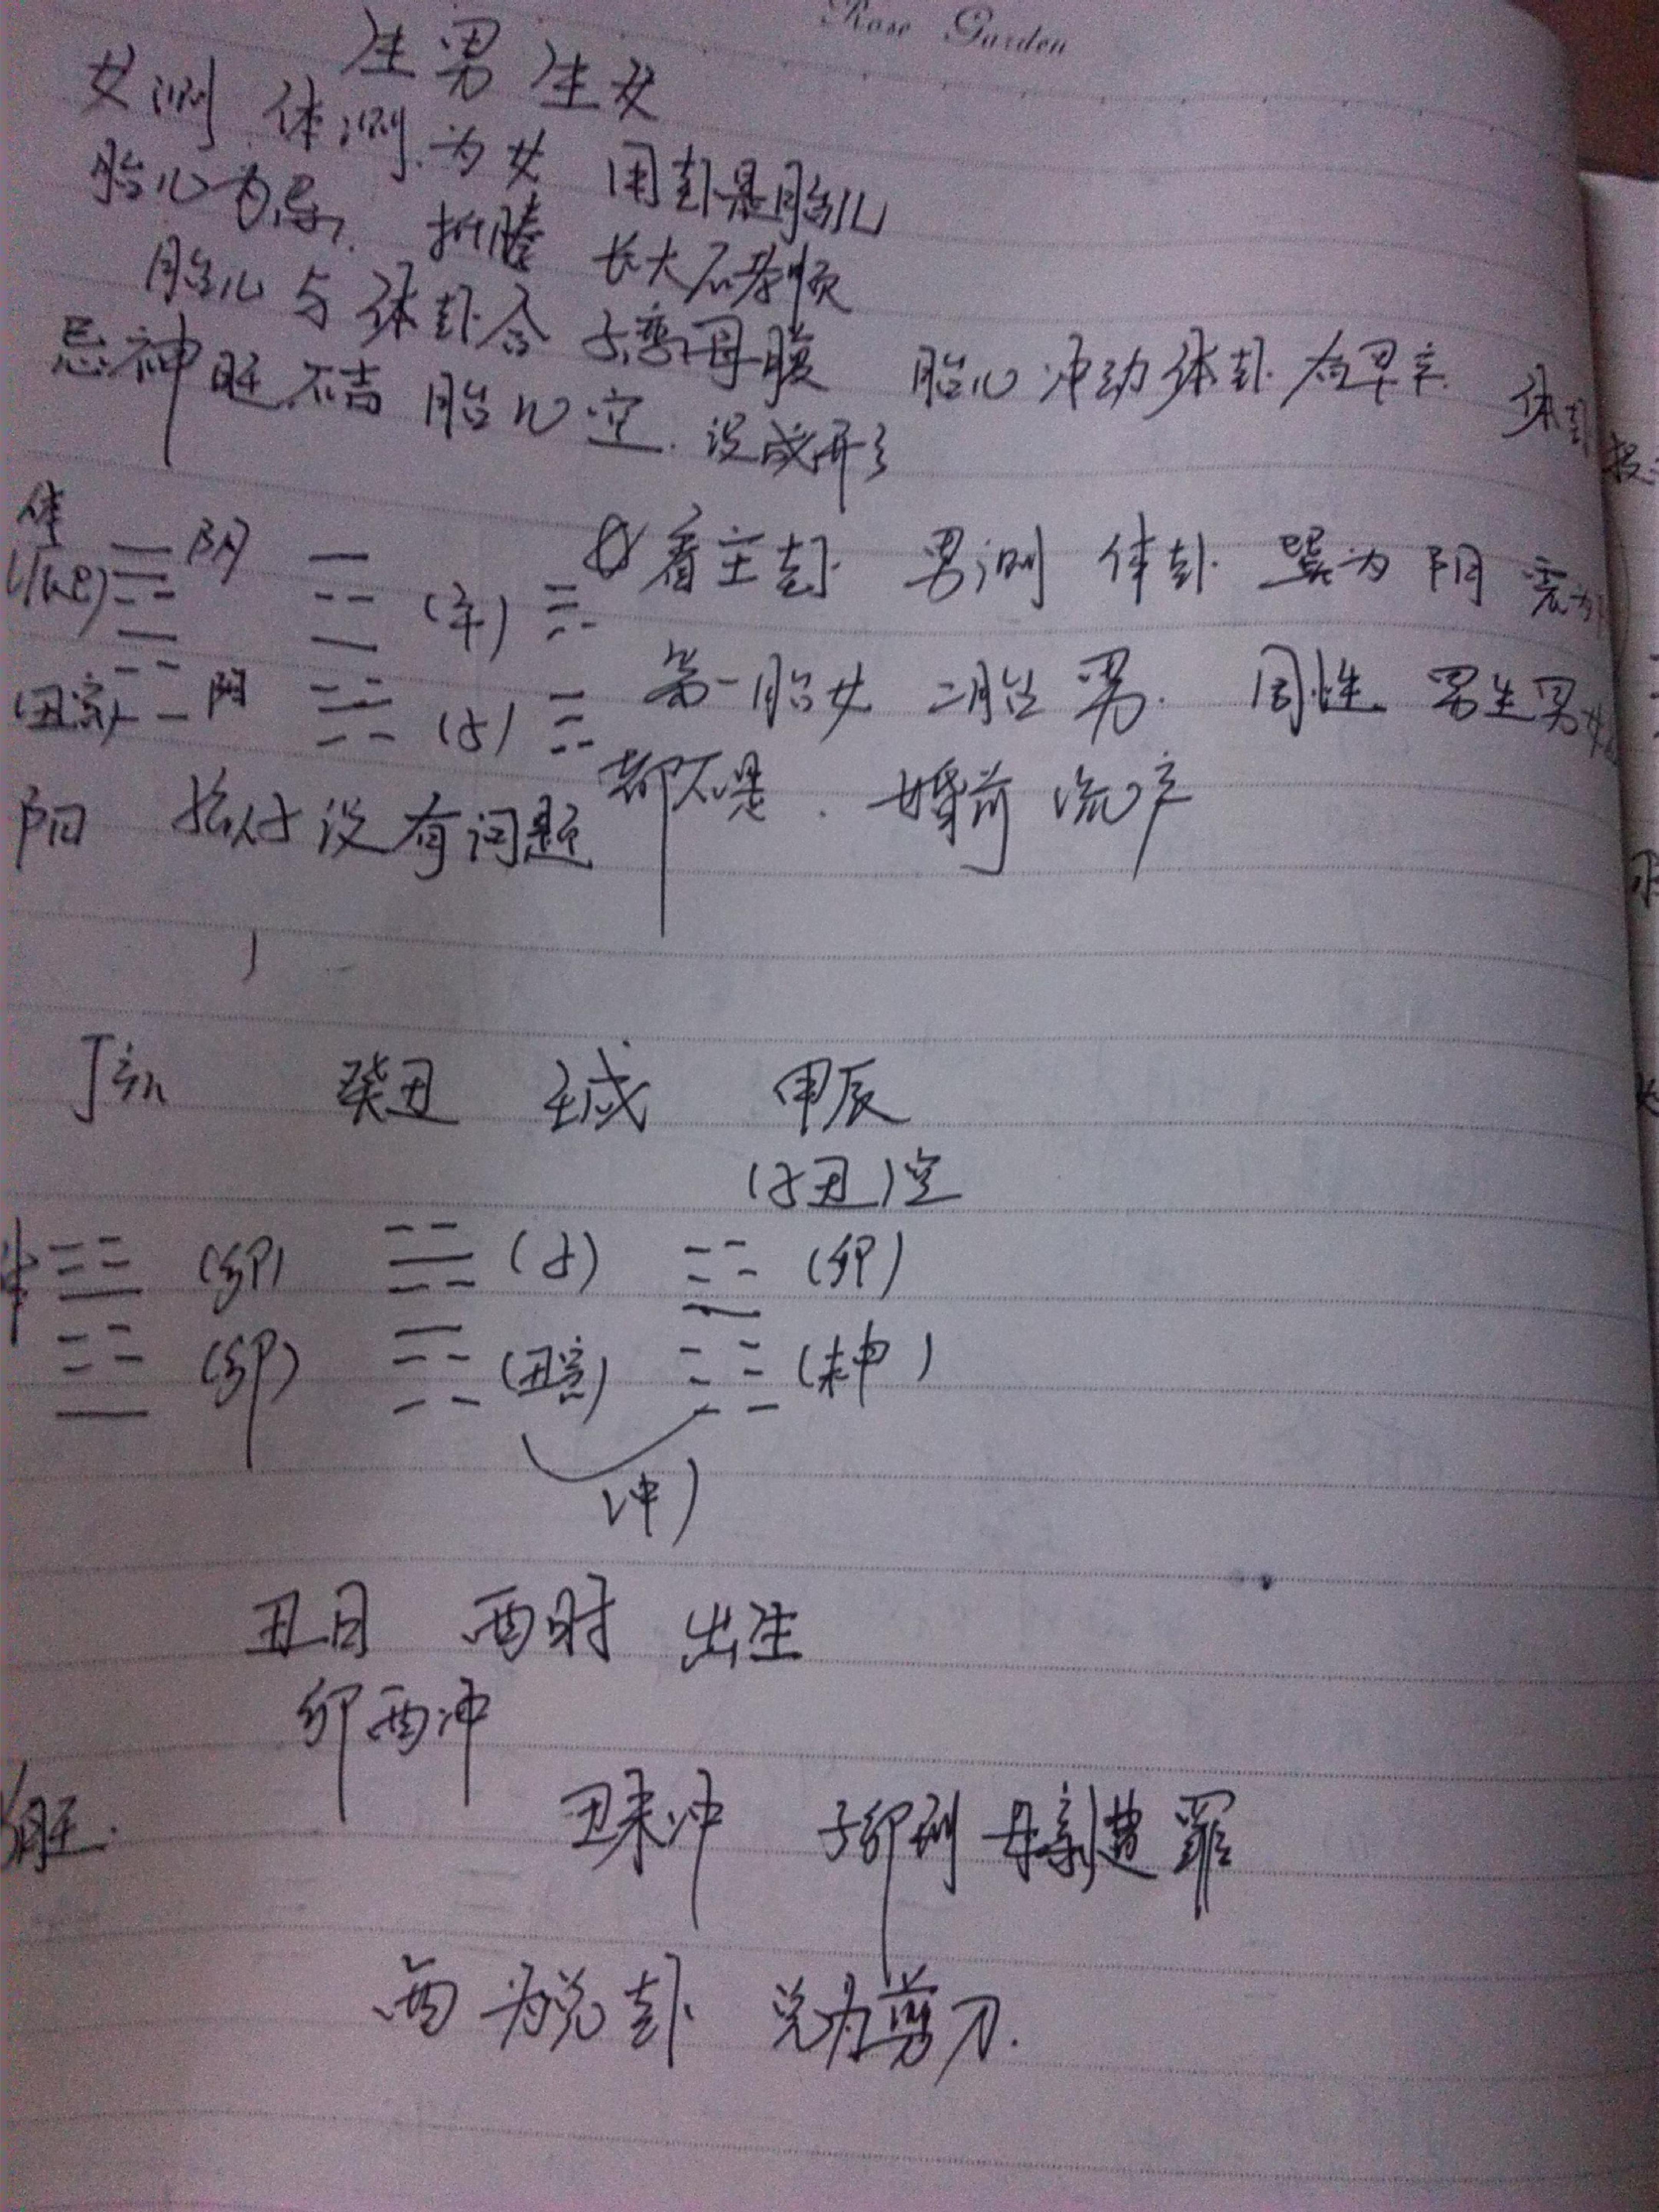 Rose Garden
生男生女
女测 体测为女 用卦是胎儿
胎儿为忌 折腾 长大不孝顺
胎儿与体卦合 子恋母腹 胎儿冲动体卦为早产 体卦
忌神旺不吉 胎儿空 没成形
体
阴 看主卦 男测 体卦 巽为阴 震为
(午)
(丑寅) 阴 (子) 第一胎女 二胎男 同性 男生男
都不是 婚前流产
阳 没有问题
丁亥 癸丑 壬戌 甲辰
(子丑)空
体 (卯) (子) (卯)
(卯) (丑寅) (未申)
(冲)
丑日 酉时 出生
卯酉冲
旺
丑未冲 子卯刑 母亲遭罪
酉为兑卦 兑为剪刀